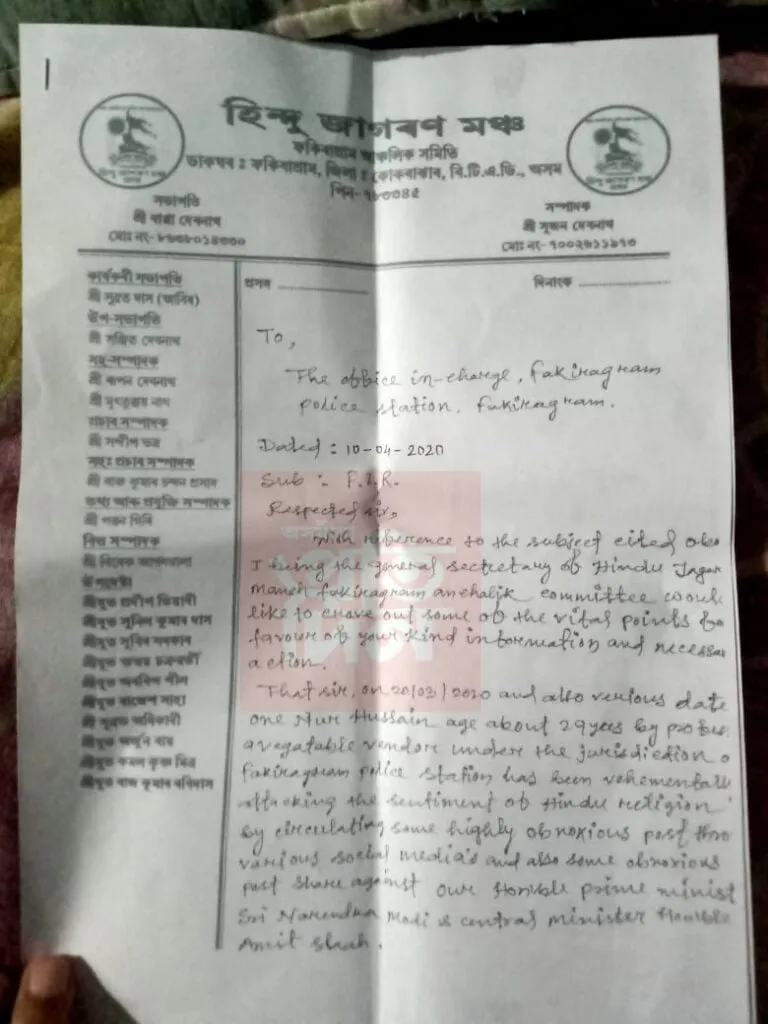 হিন্দু জাগৰণ মঞ্চ
ফকিৰাগ্ৰাম আঞ্চলিক সমিতি
ডাকঘৰ : ফকিৰাগ্ৰাম, জিলা : কোকৰাঝাৰ, বি.টি.এ.ডি., অসম
পিন-৭৮৩৩৪৫
সভাপতি
শ্ৰী বাপ্পা দেবনাথ
সম্পাদক
শ্ৰী সুজন দেবনাথ
কাৰ্যকৰী সভাপতি
শ্ৰী সুব্ৰত দাস (আবিৰ)
উপ-সভাপতি
শ্ৰী সঞ্জিত দেবনাথ
সহ-সম্পাদক
শ্ৰী ৰূপন দেবনাথ
শ্ৰী মৃত্যুঞ্জয় নাথ
প্ৰচাৰ সম্পাদক
শ্ৰী সন্দীপ ভদ্ৰ
সহঃ প্ৰচাৰ সম্পাদক
শ্ৰী ৰাজ কুমাৰ চন্দন প্ৰসাদ
তথ্য আৰু প্ৰযুক্তি সম্পাদক
শ্ৰী পৱন গিৰি
বিত্ত সম্পাদক
শ্ৰী বিবেক আগৰৱালা
উপদেষ্টা
শ্ৰীযুত প্ৰদীপ ভিয়ানী
শ্ৰীযুত সুনিল কুমাৰ দাস
শ্ৰীযুত সুবিৰ সৰকাৰ
শ্ৰীযুত অভয় চক্ৰবৰ্তী
শ্ৰীযুত অৰবিন্দ শীল
শ্ৰীযুত ৰাজেশ সাহা
শ্ৰী সুব্ৰত অধিকাৰী
শ্ৰীযুত অৰ্জুন ৰায়
শ্ৰীযুত কমল কৃষ্ণ মিত্ৰ
শ্ৰীযুত ৰাজ কুমাৰ ৰবিদাস
প্ৰসঙ্গ
দিনাংক
To,
The office in-charge, Fakiragram
police station, Fakiragram.
Dated : 10-04-2020
Sub :- F.I.R.
Respected sir,
With reference to the subject cited abo
I being the general sectretary of Hindu Jagar
manch fakiragram anchalik committee would
like to crave out some of the vital points fo
favour of your kind information and necessar
action.
That sir, on 20/03/2020 and also verious date
one Nur Hussain age about 29yees by profes
a vegatable vendor under the jurisdiction o
fakiragram police station has been vehementall
attacking the sentiment of Hindu religion
by circulating some highly obnoxious post thro
various social media's and also some obnoxious
post share against our Honble prime minist
Sri Narendra Modi & central minister Honble
Amit shah.
প্ৰতি